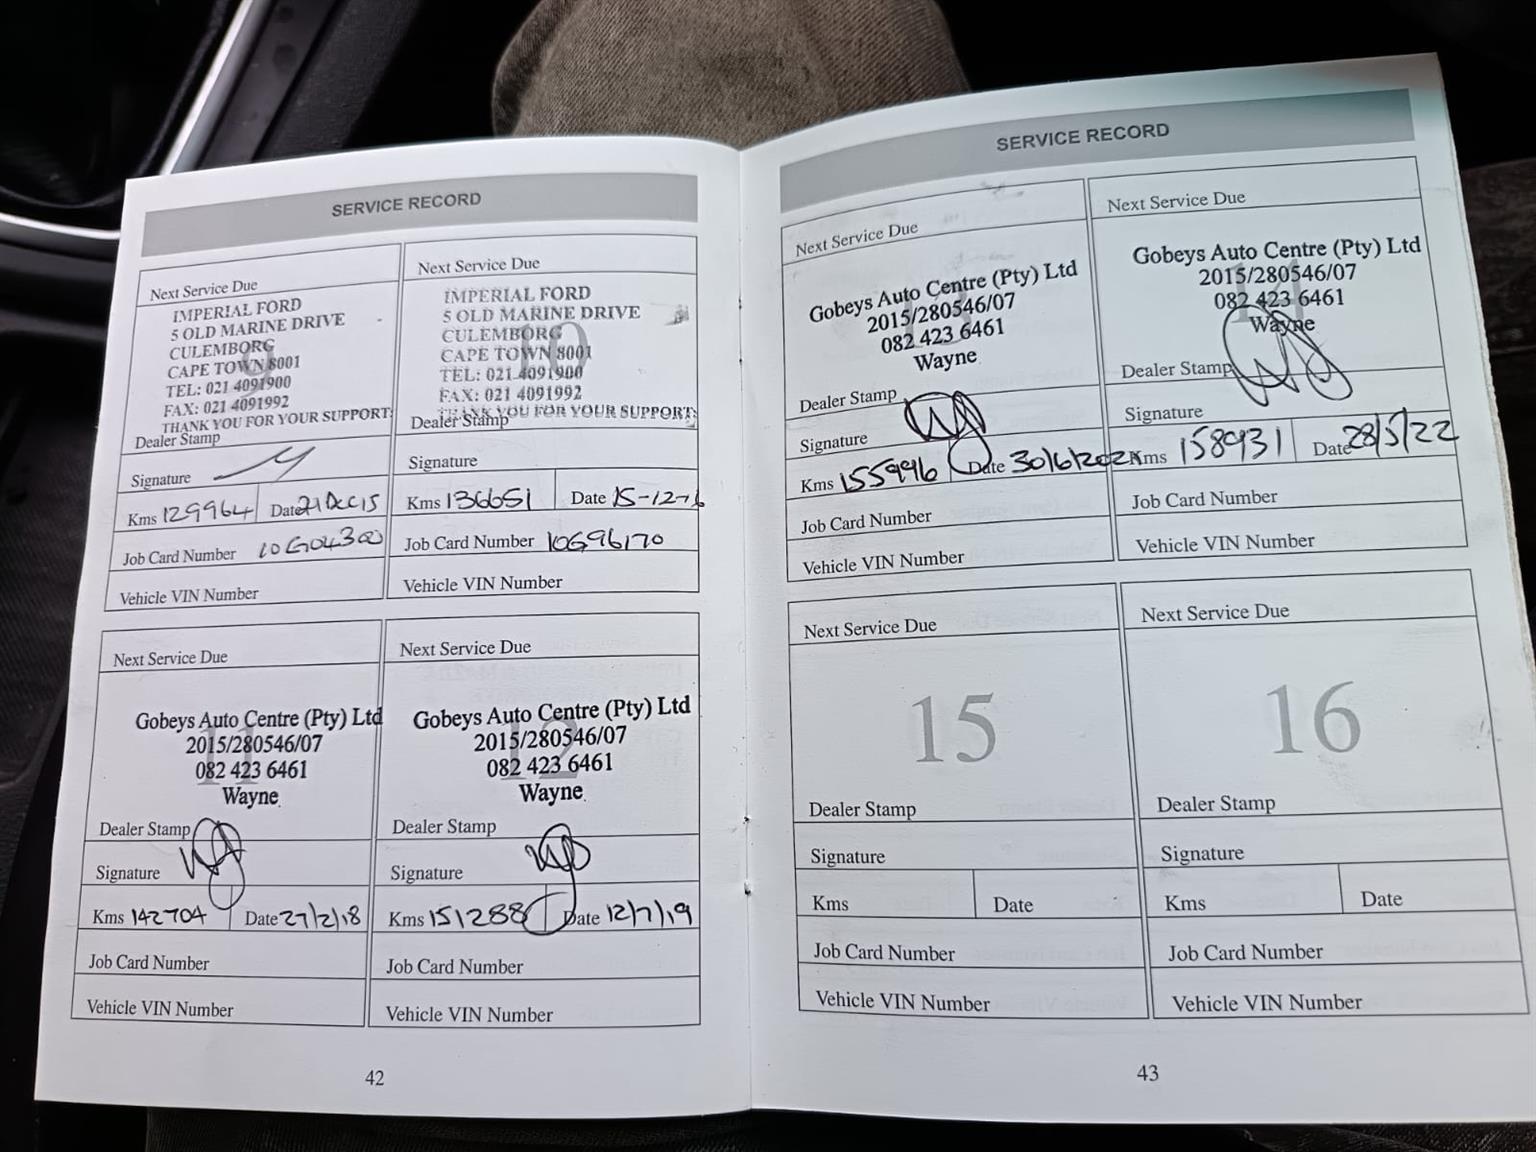 SERVICE RECORD
Next Service Due
IMPERIAL FORD
5 OLD MARINE DRIVE
CULEMBORG
9
CAPE TOWN 8001
TEL: 021 4091900
FAX: 021 4091992
THANK YOU FOR YOUR SUPPORT:
Dealer Stamp
Signature
Kms 129964 Date 21 Dec 15
Job Card Number 10G04300
Vehicle VIN Number
Next Service Due
IMPERIAL FORD
5 OLD MARINE DRIVE
CULEMBORG
10
CAPE TOWN 8001
TEL: 021 4091900
FAX: 021 4091992
THANK YOU FOR YOUR SUPPORT:
Dealer Stamp
Signature
Kms 136651 Date 15-12-16
Job Card Number 10G96170
Vehicle VIN Number
Next Service Due
Gobeys Auto Centre (Pty) Ltd
2015/280546/07
11
082 423 6461
Wayne
Dealer Stamp
Signature
Kms 142704 Date 27/2/18
Job Card Number
Vehicle VIN Number
Next Service Due
Gobeys Auto Centre (Pty) Ltd
2015/280546/07
12
082 423 6461
Wayne
Dealer Stamp
Signature
Kms 151288 Date 12/7/19
Job Card Number
Vehicle VIN Number
42
SERVICE RECORD
Next Service Due
Gobeys Auto Centre (Pty) Ltd
2015/280546/07
082 423 6461
Wayne
Dealer Stamp
Signature
Kms 155996 Date 30/6/2021
Job Card Number
Vehicle VIN Number
Next Service Due
Gobeys Auto Centre (Pty) Ltd
2015/280546/07
14
082 423 6461
Wayne
Dealer Stamp
Signature
Kms 158931 Date 28/5/22
Job Card Number
Vehicle VIN Number
Next Service Due
15
Dealer Stamp
Signature
Kms Date
Job Card Number
Vehicle VIN Number
Next Service Due
16
Dealer Stamp
Signature
Kms Date
Job Card Number
Vehicle VIN Number
43